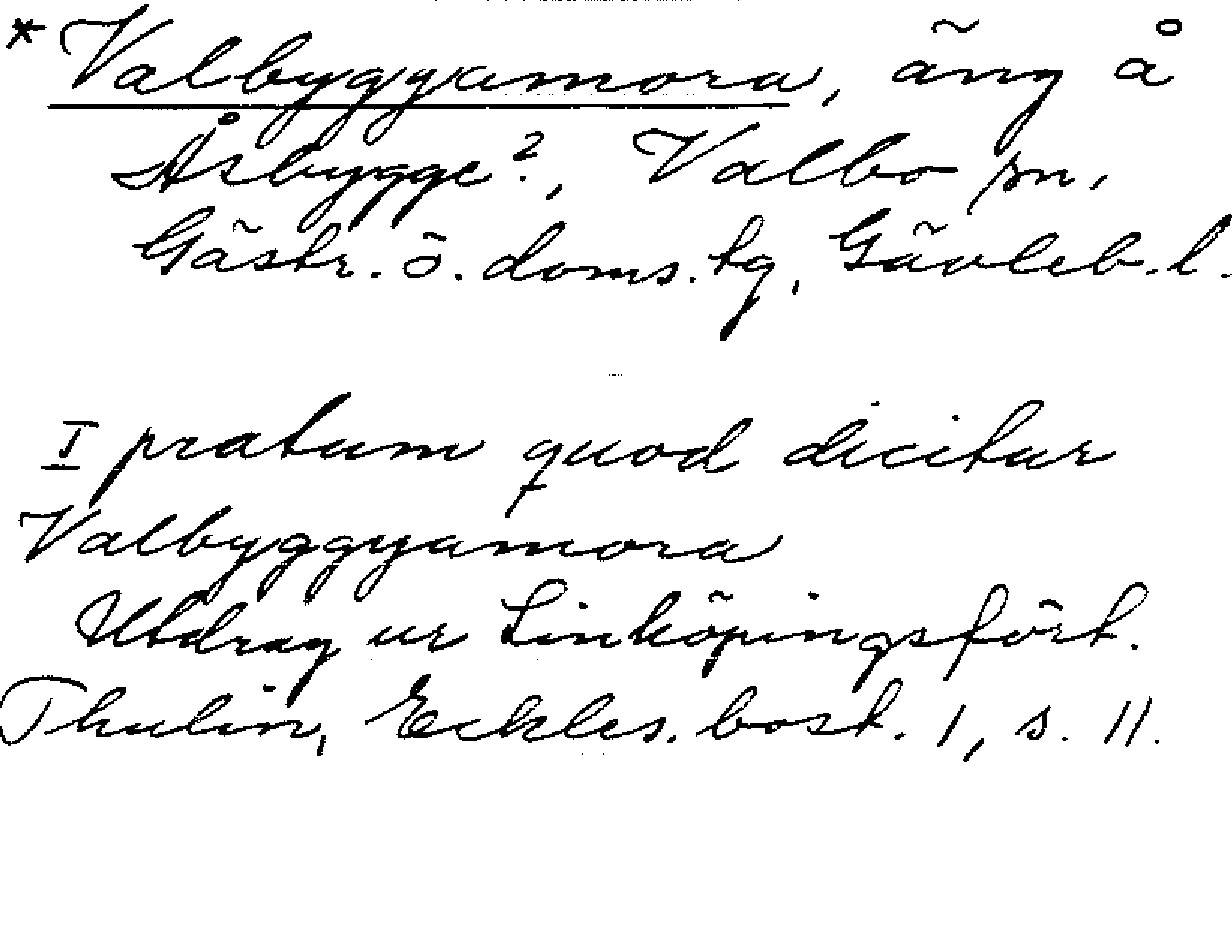 * Valbyggyamora, äng å
Åsbygge?, Valbo sn,
Gästr. ö. doms. tg, Gävleb. l.
I pratum quod dicitur
Valbyggyamora
Utdrag ur Linköpingsfört.
Thulin, Eckles. bost. 1, s. 11.